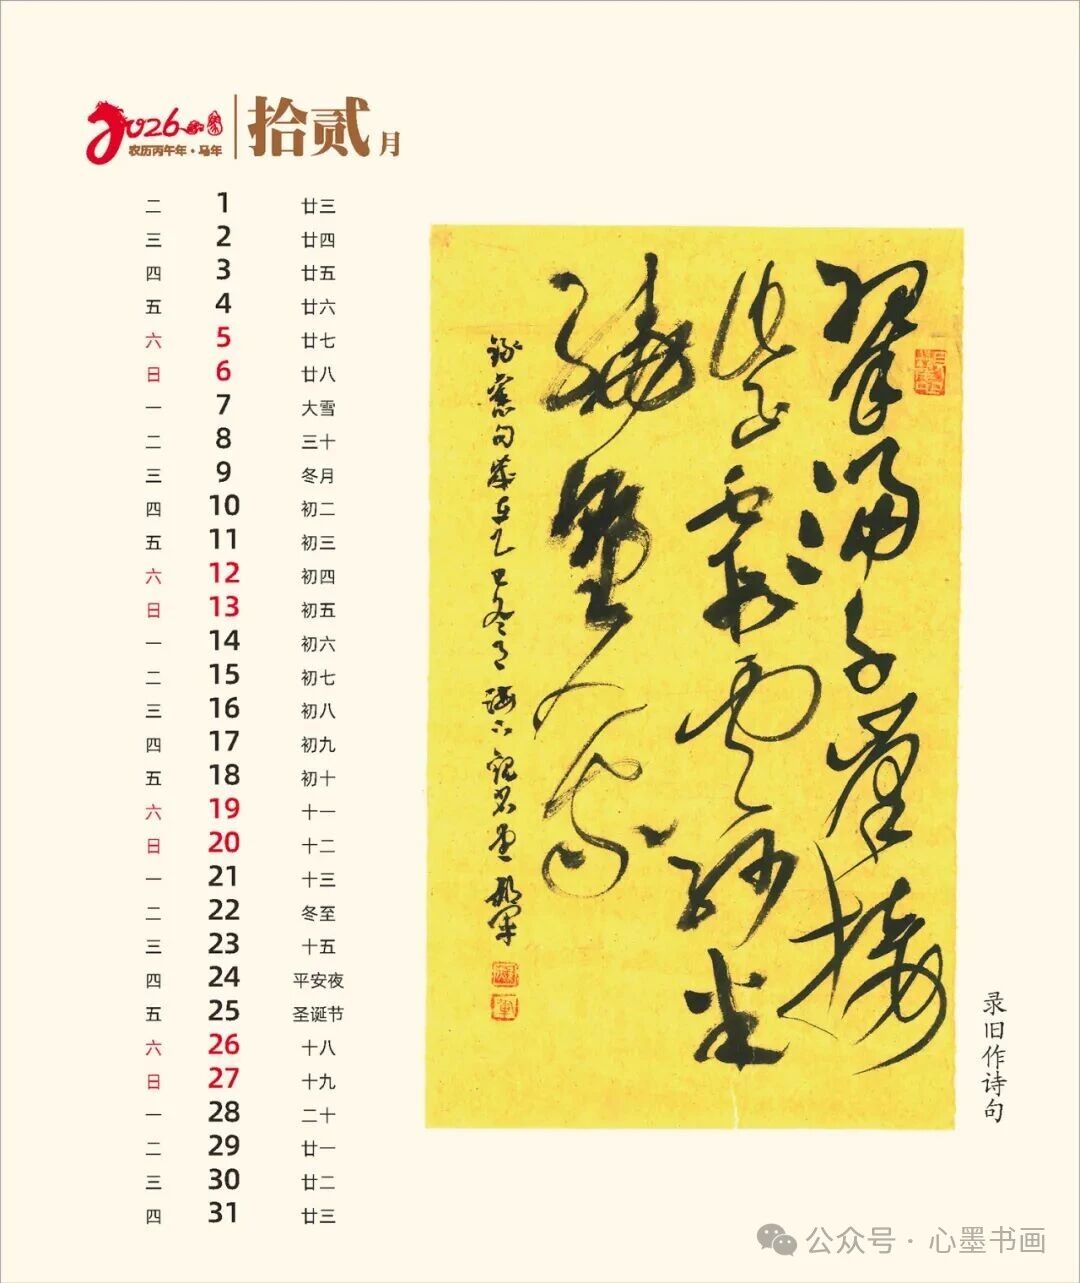 2026
农历丙午年·马年
拾贰月
二 1 廿三
三 2 廿四
四 3 廿五
五 4 廿六
六 5 廿七
日 6 廿八
一 7 大雪
二 8 三十
三 9 冬月
四 10 初二
五 11 初三
六 12 初四
日 13 初五
一 14 初六
二 15 初七
三 16 初八
四 17 初九
五 18 初十
六 19 十一
日 20 十二
一 21 十三
二 22 冬至
三 23 十五
四 24 平安夜
五 25 圣诞节
六 26 十八
日 27 十九
一 28 二十
二 29 廿一
三 30 廿二
四 31 廿三
翠涌千崖接
霞云
人家
旧句
乙巳冬月
录旧作诗句
公众号·心墨书画